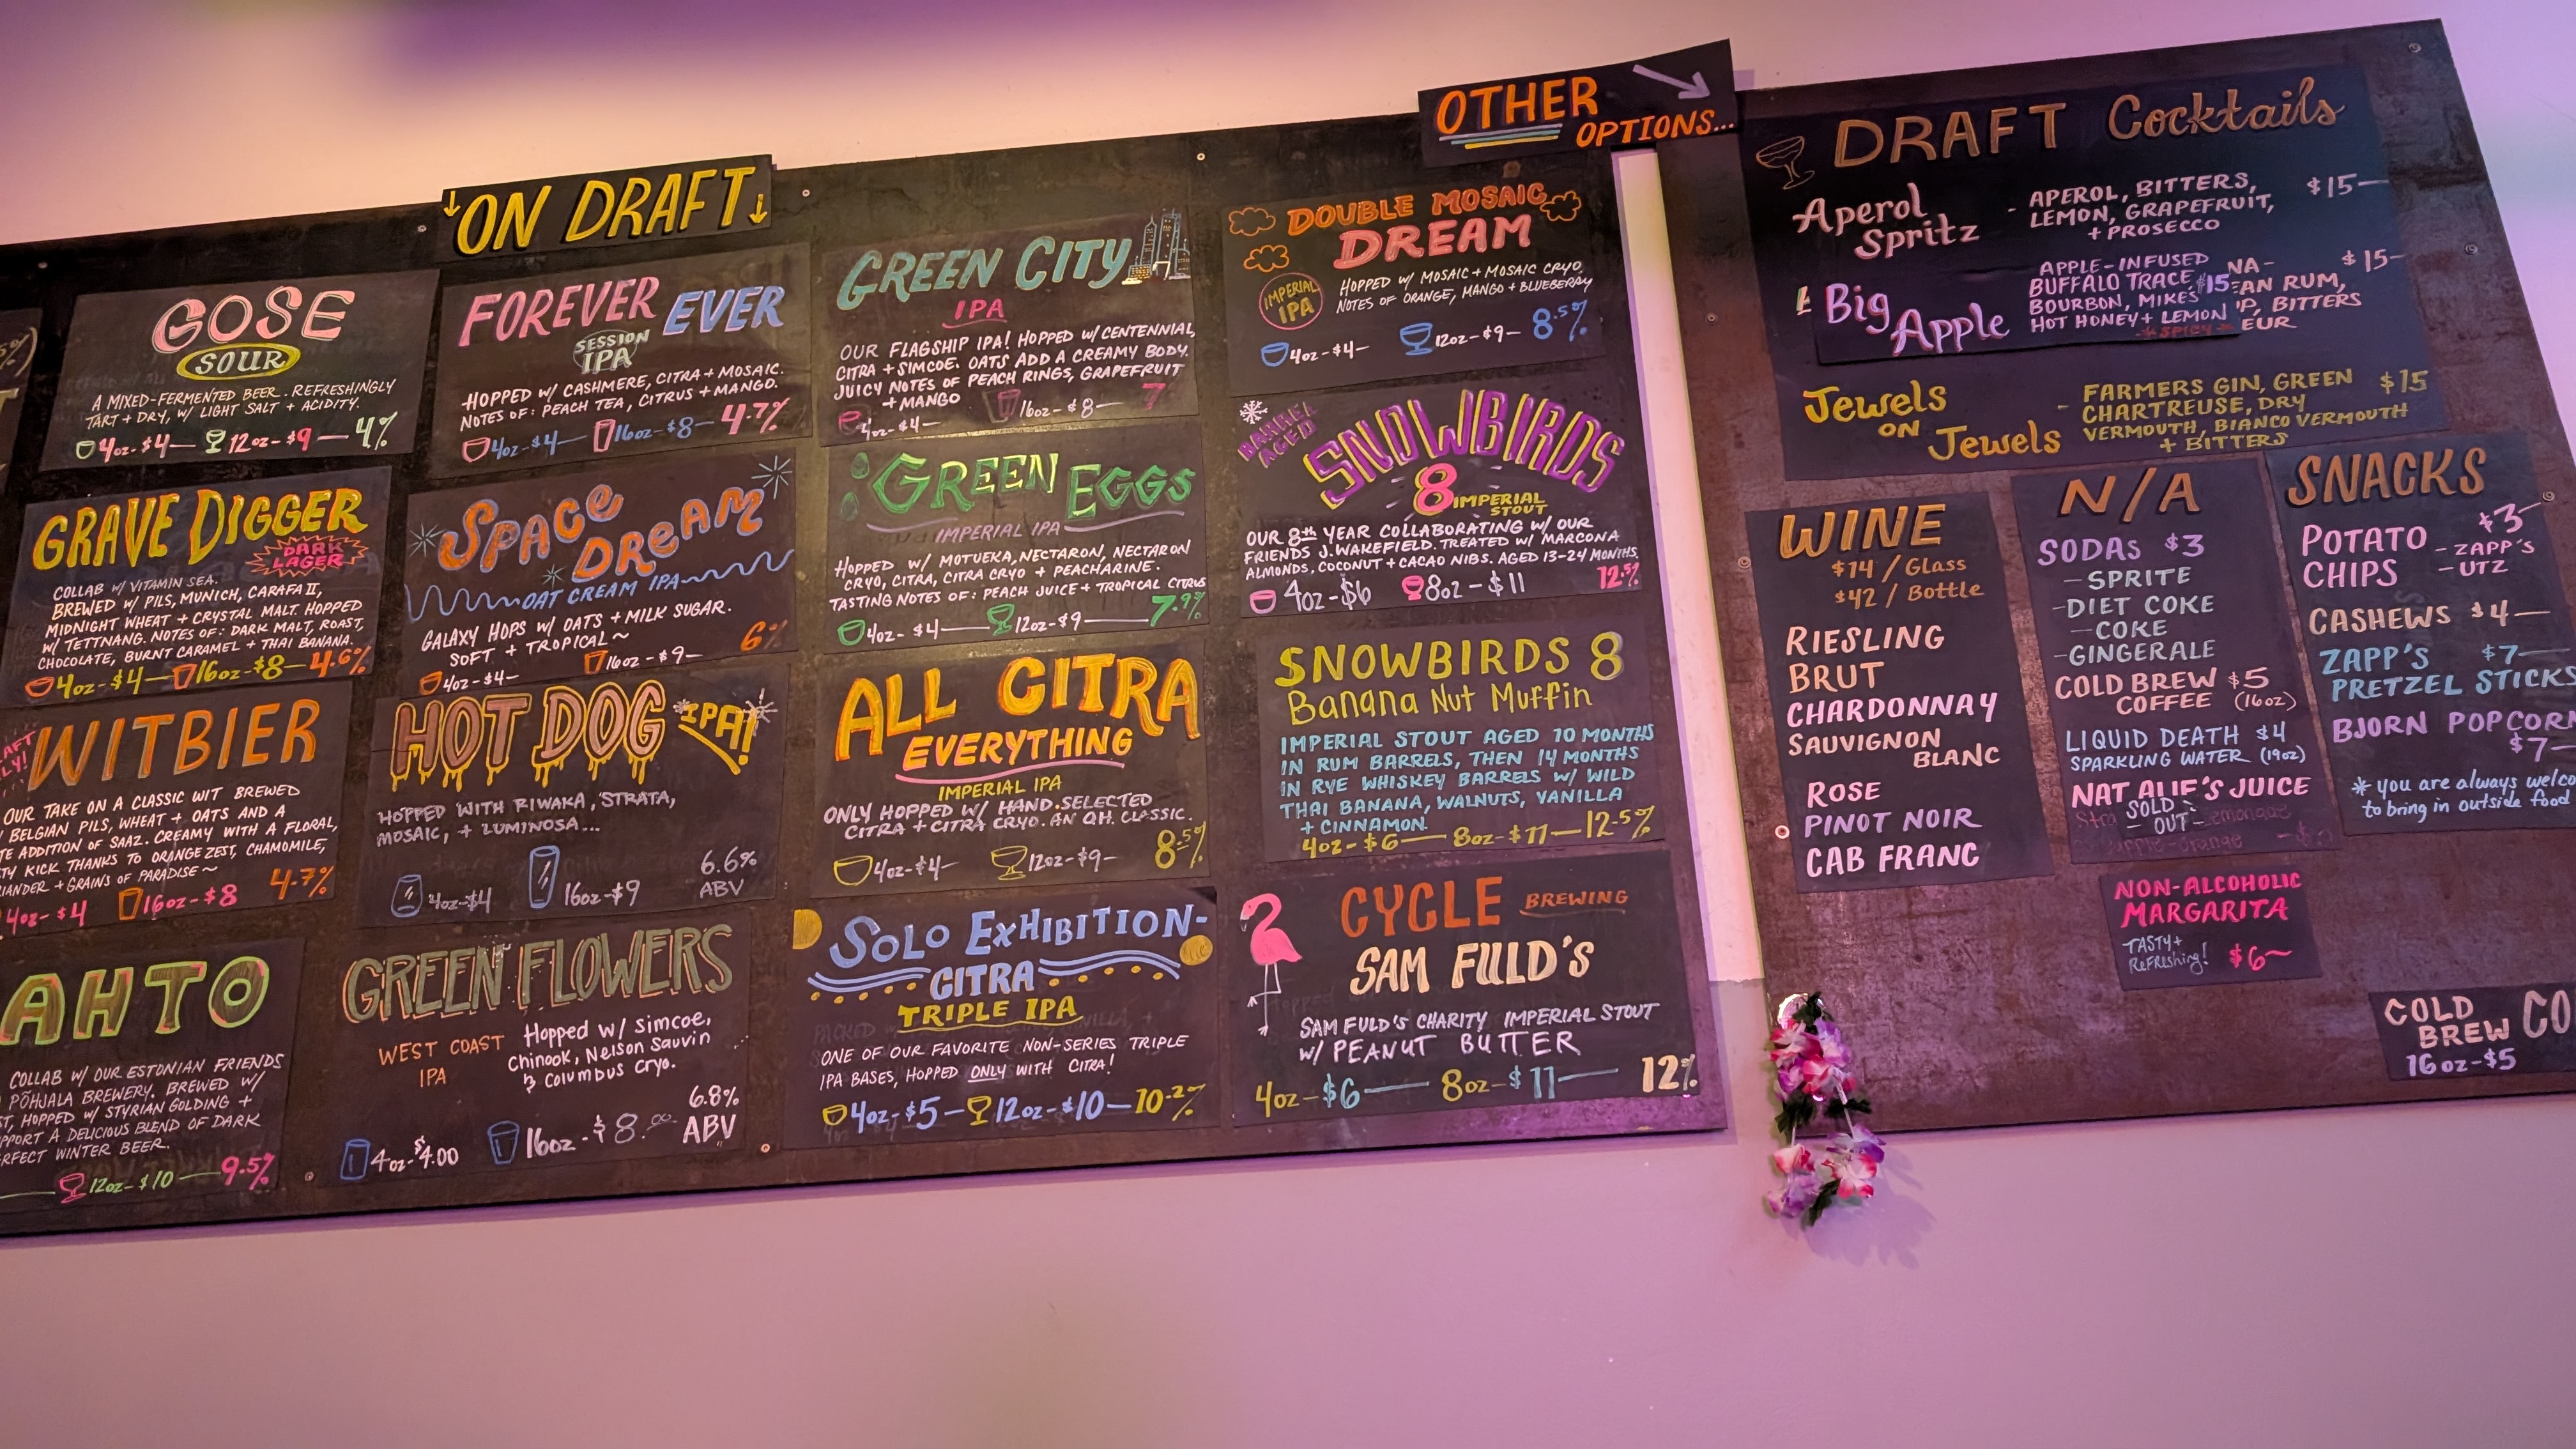 ON DRAFT
GOSE
SOUR
A MIXED-FERMENTED BEER. REFRESHINGLY
TART + DRY, W/ LIGHT SALT + ACIDITY.
4oz-$4 — 12oz-$9 — 4%
GRAVE DIGGER
DARK
LAGER
COLLAB W/ VITAMIN SEA.
BREWED W/ PILS, MUNICH, CARAFA II,
MIDNIGHT WHEAT + CRYSTAL MALT. HOPPED
W/ TETTNANG. NOTES OF: DARK MALT, ROAST,
CHOCOLATE, BURNT CARAMEL + THAI BANANA.
4oz-$4 — 16oz-$8 — 4.6%
WITBIER
OUR TAKE ON A CLASSIC WIT BREWED
BELGIAN PILS, WHEAT + OATS AND A
ADDITION OF SAAZ. CREAMY WITH A FLORAL,
KICK THANKS TO ORANGE ZEST, CHAMOMILE,
+ GRAINS OF PARADISE ~
4oz-$4 16oz-$8 4.7%
AHTO
COLLAB W/ OUR ESTONIAN FRIENDS
PÕHJALA BREWERY. BREWED W/
HOPPED W/ STYRIAN GOLDING +
A DELICIOUS BLEND OF DARK
WINTER BEER.
12oz-$10 — 9.5%
FOREVER EVER
SESSION
IPA
HOPPED W/ CASHMERE, CITRA + MOSAIC.
NOTES OF: PEACH TEA, CITRUS + MANGO.
4oz-$4 — 16oz-$8 — 4.7%
SPACE
DREAM
OAT CREAM IPA
GALAXY HOPS W/ OATS + MILK SUGAR.
SOFT + TROPICAL ~
4oz-$4 — 16oz-$9 — 6%
HOT DOG IPA!
HOPPED WITH RIWAKA, STRATA,
MOSAIC, + LUMINOSA...
4oz-$4 16oz-$9 6.6%
ABV
GREEN FLOWERS
WEST COAST
IPA
Hopped w/ Simcoe,
Chinook, Nelson Sauvin
& Columbus Cryo.
4oz-$4.00 16oz-$8.00 6.8%
ABV
GREEN CITY
IPA
OUR FLAGSHIP IPA! HOPPED W/ CENTENNIAL,
CITRA + SIMCOE. OATS ADD A CREAMY BODY.
JUICY NOTES OF PEACH RINGS, GRAPEFRUIT
+ MANGO
4oz-$4 — 16oz-$8 — 7
GREEN EGGS
IMPERIAL IPA
HOPPED W/ MOTUEKA, NECTARON, NECTARON
CRYO, CITRA, CITRA CRYO + PEACHARINE.
TASTING NOTES OF: PEACH JUICE + TROPICAL CITRUS
4oz-$4 — 12oz-$9 — 7.9%
ALL CITRA
EVERYTHING
IMPERIAL IPA
ONLY HOPPED W/ HAND-SELECTED
CITRA + CITRA CRYO. AN QH CLASSIC.
4oz-$4 — 12oz-$9 — 8.5%
SOLO EXHIBITION-
CITRA
TRIPLE IPA
ONE OF OUR FAVORITE NON-SERIES TRIPLE
IPA BASES, HOPPED ONLY WITH CITRA!
4oz-$5 — 12oz-$10 — 10.2%
DOUBLE MOSAIC
DREAM
IMPERIAL
IPA
HOPPED W/ MOSAIC + MOSAIC CRYO
NOTES OF ORANGE, MANGO + BLUEBERRY
4oz-$4 — 12oz-$9 — 8.5%
BARREL
AGED
SNOWBIRDS
8 IMPERIAL
STOUT
OUR 8th YEAR COLLABORATING W/ OUR
FRIENDS J. WAKEFIELD. TREATED W/ MARCONA
ALMONDS, COCONUT + CACAO NIBS. AGED 13-24 MONTHS
4oz-$6 8oz-$11 12.5%
SNOWBIRDS 8
Banana Nut Muffin
IMPERIAL STOUT AGED 10 MONTHS
IN RUM BARRELS, THEN 14 MONTHS
IN RYE WHISKEY BARRELS W/ WILD
THAI BANANA, WALNUTS, VANILLA
+ CINNAMON.
4oz-$6 — 8oz-$11 — 12.5%
CYCLE BREWING
SAM FULD'S
SAM FULD'S CHARITY IMPERIAL STOUT
W/ PEANUT BUTTER
4oz-$6 — 8oz-$11 — 12%
OTHER
OPTIONS...
DRAFT Cocktails
Aperol
Spritz
- APEROL, BITTERS,
LEMON, GRAPEFRUIT,
+ PROSECCO
$15—
Big
Apple
APPLE-INFUSED
BUFFALO TRACE
BOURBON, MIKES
HOT HONEY + LEMON
$15
NA-
EAN RUM,
P, BITTERS
EUR
*SPICY*
$15-
Jewels
ON Jewels
- FARMERS GIN, GREEN
CHARTREUSE, DRY
VERMOUTH, BIANCO VERMOUTH
+ BITTERS
$15
WINE
$14 / Glass
$42 / Bottle
RIESLING
BRUT
CHARDONNAY
SAUVIGNON
BLANC
ROSE
PINOT NOIR
CAB FRANC
N/A
SODAS $3
- SPRITE
- DIET COKE
- COKE
- GINGERALE
COLD BREW $5
COFFEE (16oz)
LIQUID DEATH $4
SPARKLING WATER (19oz)
NAT ALIF'S JUICE
SOLD
- OUT -
NON-ALCOHOLIC
MARGARITA
TASTY +
REFRESHING!
$6~
SNACKS
POTATO
CHIPS
$3-
- ZAPP'S
- UTZ
CASHEWS $4—
ZAPP'S $7—
PRETZEL STICKS
BJORN POPCOR
$7—
* you are always welco
to bring in outside food
COLD
BREW CO
16oz-$5